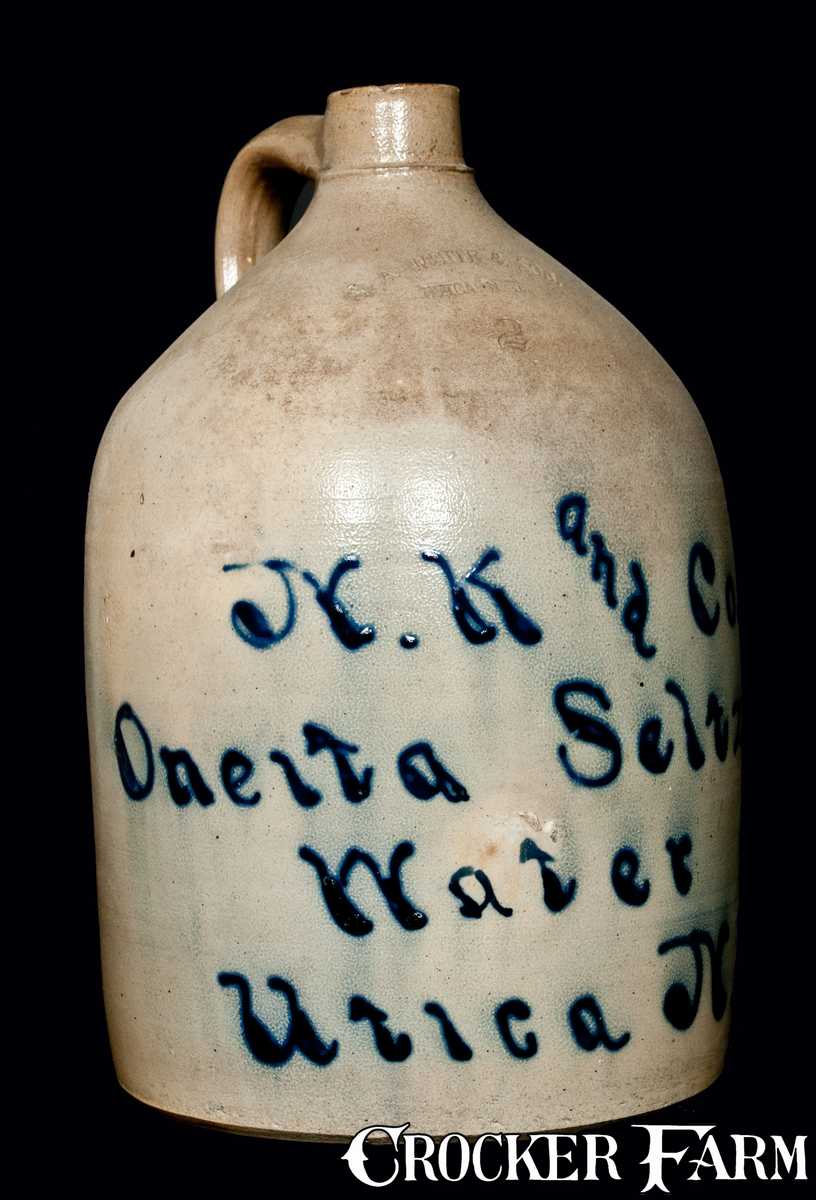 2
N. K and Co
Oneita Seltz
Water
Utica N.
CROCKER FARM